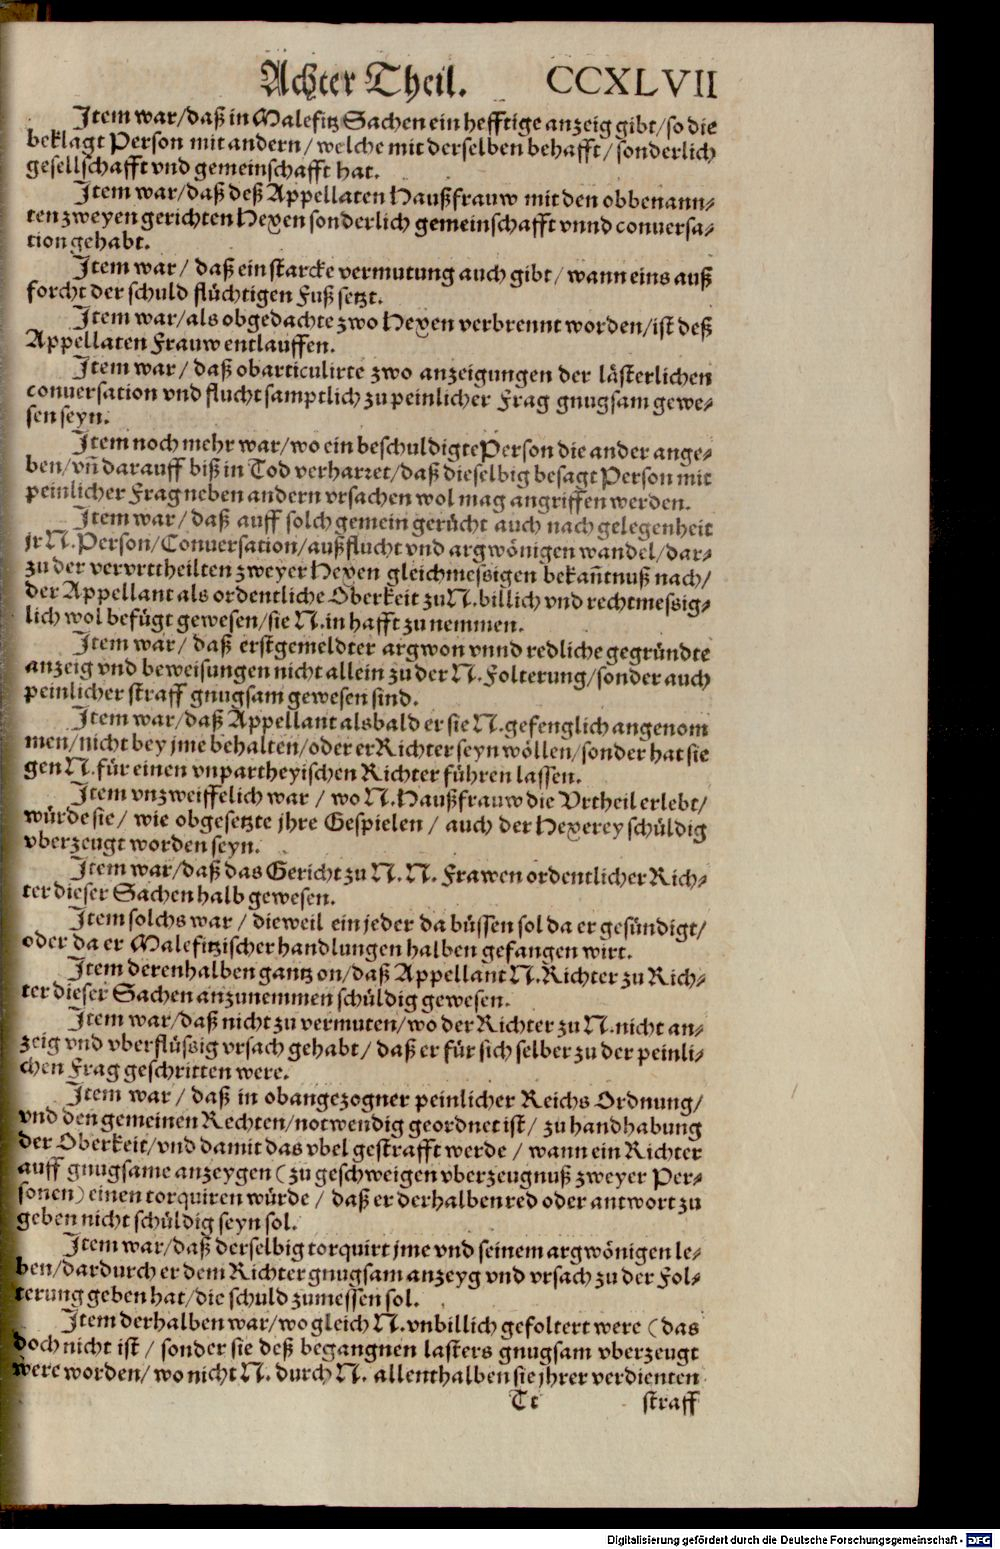 Achter Theil. CCXLVII
Item war/daß in Malefitz Sachen ein hefftige anzeig gibt/so die
beklagt Person mit andern/welche mit derselben behafft/sonderlich
gesellschafft vnd gemeinschafft hat.
Item war/daß deß Appellaten Haußfrauw mit den obbenann-
ten zweyen gerichten Hexen sonderlich gemeinschafft vnnd conuersa-
tion gehabt.
Item war/ daß ein starcke vermutung auch gibt/wann eins auß
forcht der schuld flüchtigen Fuß setzt.
Item war/als obgedachte zwo Hexen verbrennt worden/ist deß
Appellaten Frauw entlauffen.
Item war/ daß obarticulirte zwo anzeigungen der lästerlichen
conuersation vnd flucht samptlich zu peinlicher Frag gnugsam gewe-
sen seyn.
Item noch mehr war/wo ein beschuldigte Person die ander ange-
ben/vñ darauff biß in Tod verharret/daß dieselbig besagt Person mit
peinlicher Frag neben andern vrsachen wol mag angriffen werden.
Item war/ daß auff solch gemein gerücht auch nach gelegenheit
jr N. Person/Conuersation/außflucht vnd argwönigen wandel/dar-
zu der vervrtheilten zweyer Hexen gleichmessigen bekañtnuß nach/
der Appellant als ordentliche Oberkeit zu N. billich vnd rechtmessig-
lich wol befügt gewesen/sie N. in hafft zu nemmen.
Item war/ daß erstgemeldter argwon vnnd redliche gegründte
anzeig vnd beweisungen nicht allein zu der N. Folterung/sonder auch
peinlicher straff gnugsam gewesen sind.
Item war/daß Appellant alsbald er sie N. gefenglich angenom
men/nicht bey jme behalten/oder er Richter seyn wöllen/sonder hat sie
gen N. für einen vnpartheyischen Richter führen lassen.
Item vnzweiffelich war / wo N. Haußfrauw die Vrtheil erlebt/
würde sie/ wie obgesetzte jhre Gespielen / auch der Hexerey schüldig
vberzeugt worden seyn.
Item war/daß das Gericht zu N. N. Frawen ordentlicher Rich-
ter dieser Sachen halb gewesen.
Item solchs war / dieweil ein jeder da büssen sol da er gesündigt/
oder da er Malefitzischer handlungen halben gefangen wirt.
Item derenhalben gantz on/daß Appellant N. Richter zu Rich-
ter dieser Sachen anzunemmen schüldig gewesen.
Item war/daß nicht zu vermuten/wo der Richter zu N. nicht an-
zeig vnd vberflüssig vrsach gehabt/ daß er für sich selber zu der peinli-
chen Frag geschritten were.
Item war/ daß in obangezogner peinlicher Reichs Ordnung/
vnd den gemeinen Rechten/notwendig geordnet ist/ zu handhabung
der Oberkeit/vnd damit das vbel gestrafft werde / wann ein Richter
auff gnugsame anzeygen (zu geschweigen vberzeugnuß zweyer Per-
sonen) einen torquiren würde / daß er derhalben red oder antwort zu
geben nicht schüldig seyn sol.
Item war/daß derselbig torquirt jme vnd seinem argwönigen le-
ben/dardurch er dem Richter gnugsam anzeyg vnd vrsach zu der Fol-
terung geben hat/die schuld zumessen sol.
Item derhalben war/wo gleich N. vnbillich gefoltert were (das
doch nicht ist / sonder sie deß begangnen lasters gnugsam vberzeugt
were worden/ wo nicht N. durch N. allenthalben sie jhrer verdienten
Tt straff
Digitalisierung gefördert durch die Deutsche Forschungsgemeinschaft - DFG